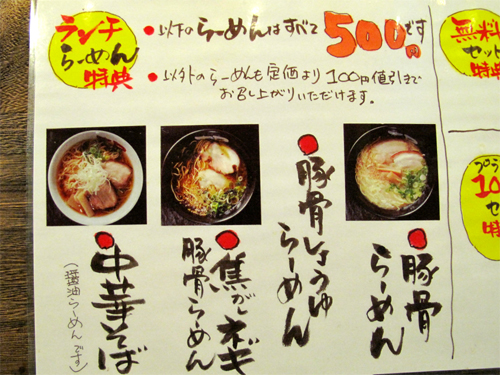 ランチ
らーめん
特典
・以下のらーめんはすべて500円です
・以外のらーめんも定価より100円値引きで
お召し上がりいただけます。
無料
セット
特典
プラ
10
セッ
特典
豚骨
らーめん
豚骨しょうゆ
らーめん
焦がしネギ
豚骨らーめん
中華そば
(醤油らーめんです)